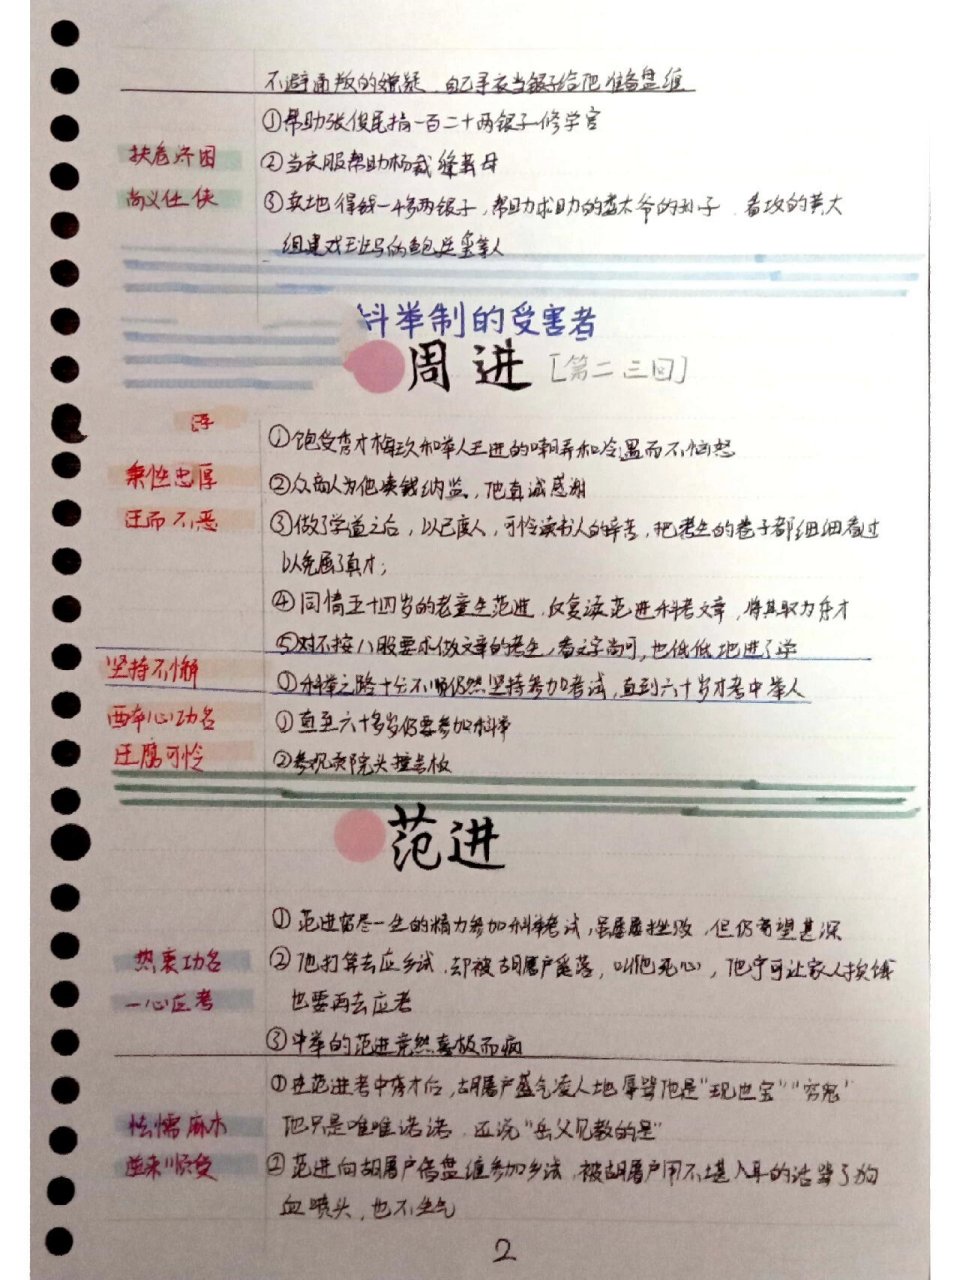 不避通叛的嫌疑，自己寻衣当银子给他准备盘缠
①帮助张俊民捐一百二十两银子修学宫
扶危济困
②当衣服帮助杨裁缝葬母
尚义任侠
③卖地得钱一千多两银子，帮助求助的娄太爷的孙子、看坟的黄大
组建戏班的鲍廷玺等人
科举制的受害者
周进［第二三回］
①饱受秀才梅玖和举人王进的嘲弄和冷遇而不恼怒
秉性忠厚
②众商人为他凑钱纳监，他真诚感谢
迂而不恶
③做了学道之后，以己度人，可怜读书人的辛苦，把考生的卷子都细细看过
以免屈了真才；
④同情五十四岁的老童生范进，反复读范进科考文章，将其取为秀才
⑤对不按八股要求做文章的考生，看文字尚可，也低低地进了学
坚持不懈
①科举之路十分不顺仍然坚持参加考试，直到六十岁才考中举人
①直至六十多岁仍要参加科举
迂腐可怜
②参观贡院头撞击板
范进
①范进穷尽一生的精力参加科举考试，虽屡屡挫败，但仍希望甚深
热衷功名
②他打算去应乡试，却被胡屠户奚落，叫他死心，他宁可让家人挨饿
一心应考
也要再去应考
③中举的范进竟然喜极而疯
①在范进考中秀才后，胡屠户盛气凌人地辱骂他是“现世宝”“穷鬼”
怯懦麻木
他只是唯唯诺诺，还说“岳父见教的是”
逆来顺受
②范进向胡屠户借盘缠参加乡试，被胡屠户用不堪入耳的话骂了狗
血喷头，也不生气
2